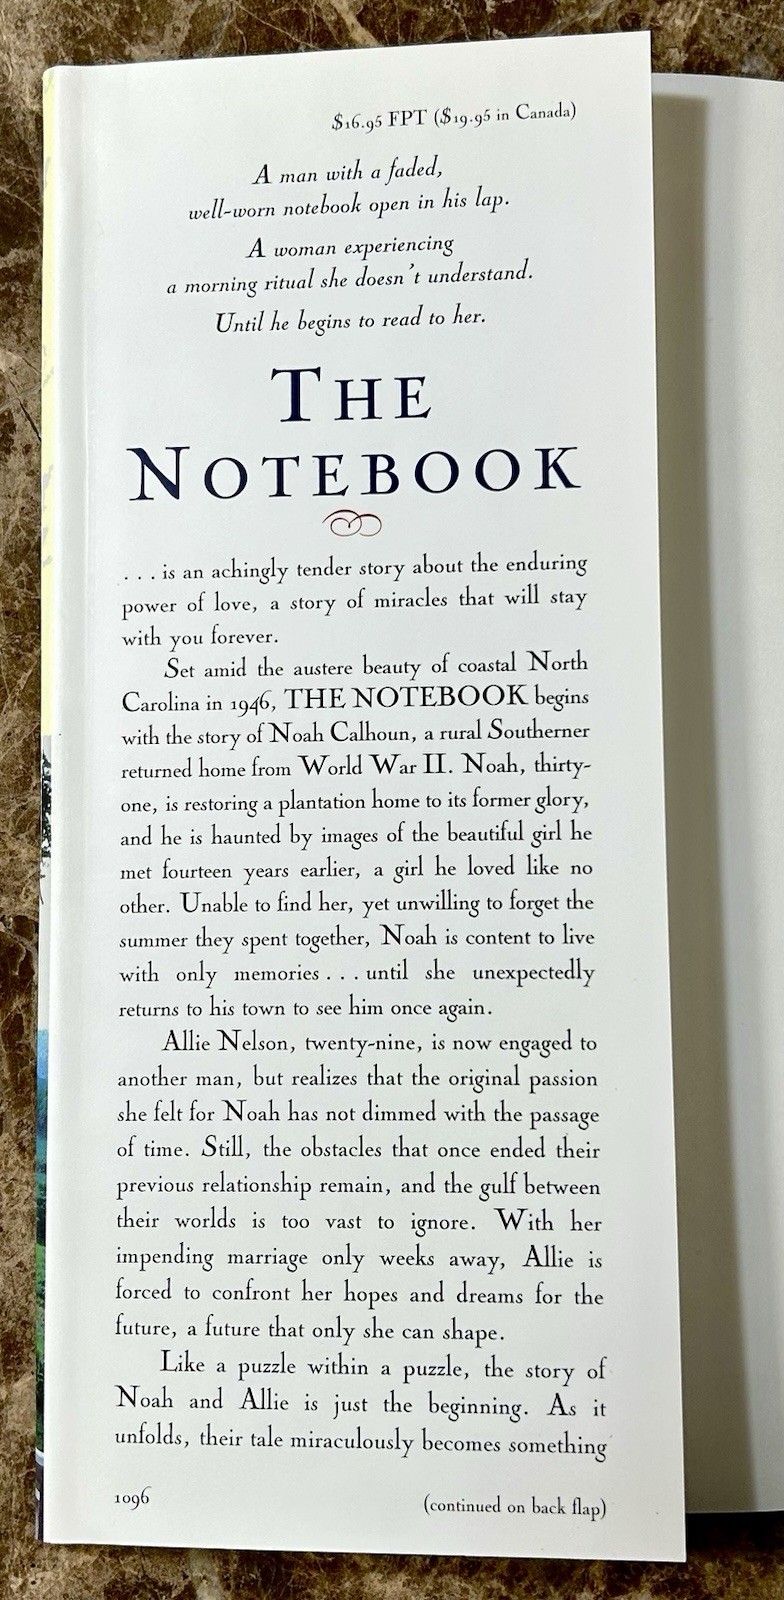 $16.95 FPT ($19.95 in Canada)
A man with a faded,
well-worn notebook open in his lap.
A woman experiencing
a morning ritual she doesn't understand.
Until he begins to read to her.
THE
NOTEBOOK
. . . is an achingly tender story about the enduring
power of love, a story of miracles that will stay
with you forever.
Set amid the austere beauty of coastal North
Carolina in 1946, THE NOTEBOOK begins
with the story of Noah Calhoun, a rural Southerner
returned home from World War II. Noah, thirty-
one, is restoring a plantation home to its former glory,
and he is haunted by images of the beautiful girl he
met fourteen years earlier, a girl he loved like no
other. Unable to find her, yet unwilling to forget the
summer they spent together, Noah is content to live
with only memories . . . until she unexpectedly
returns to his town to see him once again.
Allie Nelson, twenty-nine, is now engaged to
another man, but realizes that the original passion
she felt for Noah has not dimmed with the passage
of time. Still, the obstacles that once ended their
previous relationship remain, and the gulf between
their worlds is too vast to ignore. With her
impending marriage only weeks away, Allie is
forced to confront her hopes and dreams for the
future, a future that only she can shape.
Like a puzzle within a puzzle, the story of
Noah and Allie is just the beginning. As it
unfolds, their tale miraculously becomes something
1096
(continued on back flap)